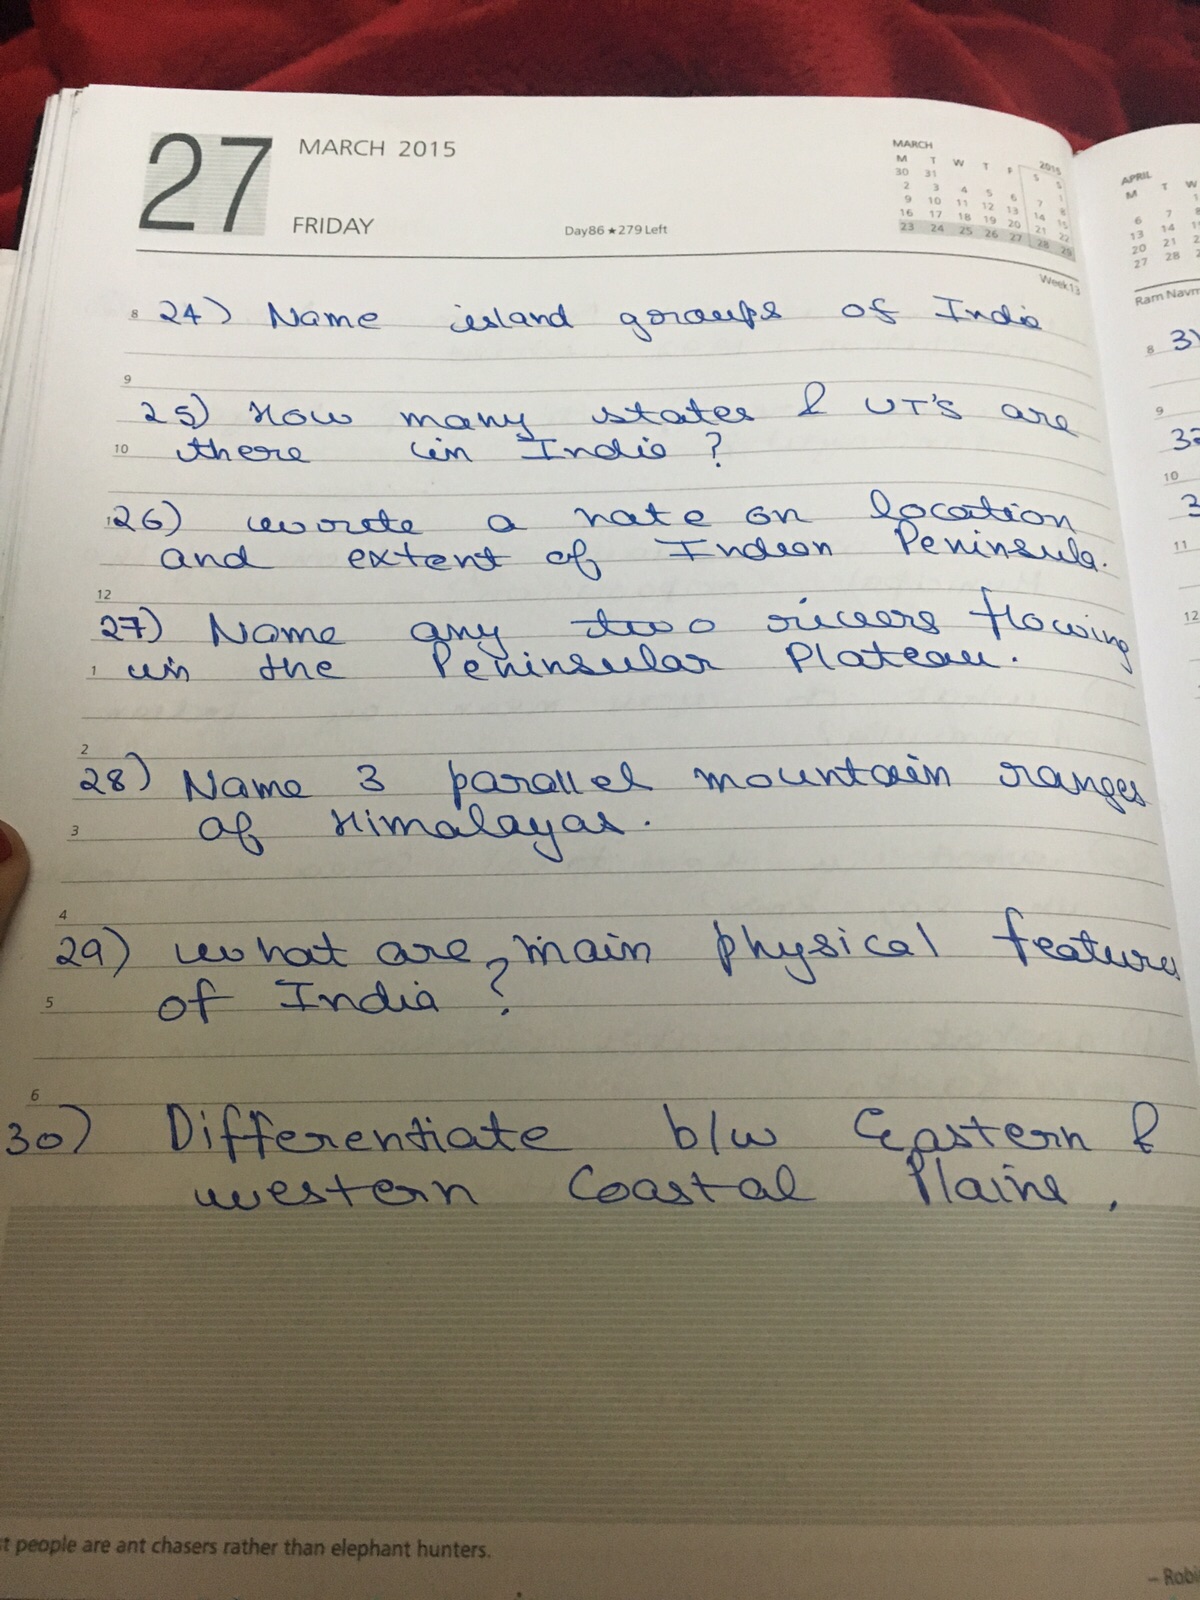 27
MARCH 2015
FRIDAY
Day86 ★ 279 Left
MARCH 2015
M T W T F S S
30 31 1
2 3 4 5 6 7 8
9 10 11 12 13 14 15
16 17 18 19 20 21 22
23 24 25 26 27 28 29
Week13
8 24) Name island groups of India
9
25) How many states & UT'S are
10 there in India?
11 26) write a note on location
and extent of Indian Peninsula.
12
27) Name any two rivers flowing
1 in the Peninsular Plateau.
2
28) Name 3 parallel mountain ranges
3 of Himalayas.
4
29) what are main physical features
5 of India?
6
30) Differentiate b/w Eastern &
western Coastal Plains.
people are ant chasers rather than elephant hunters.
APRIL
M T W
6 7
13 14
20 21
27 28
Ram
8
9
10
11
12